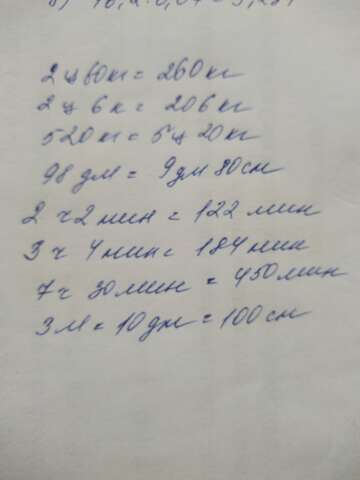 2 ц 60 кг = 260 кг
2 ц 6 к = 206 кг
520 кг = 5 ц 20 кг
98 дм = 9 дм 80 см
2 ч 2 мин = 122 мин
3 ч 4 мин = 184 мин
7 ч 30 мин = 450 мин
3 м = 10 дм = 100 см